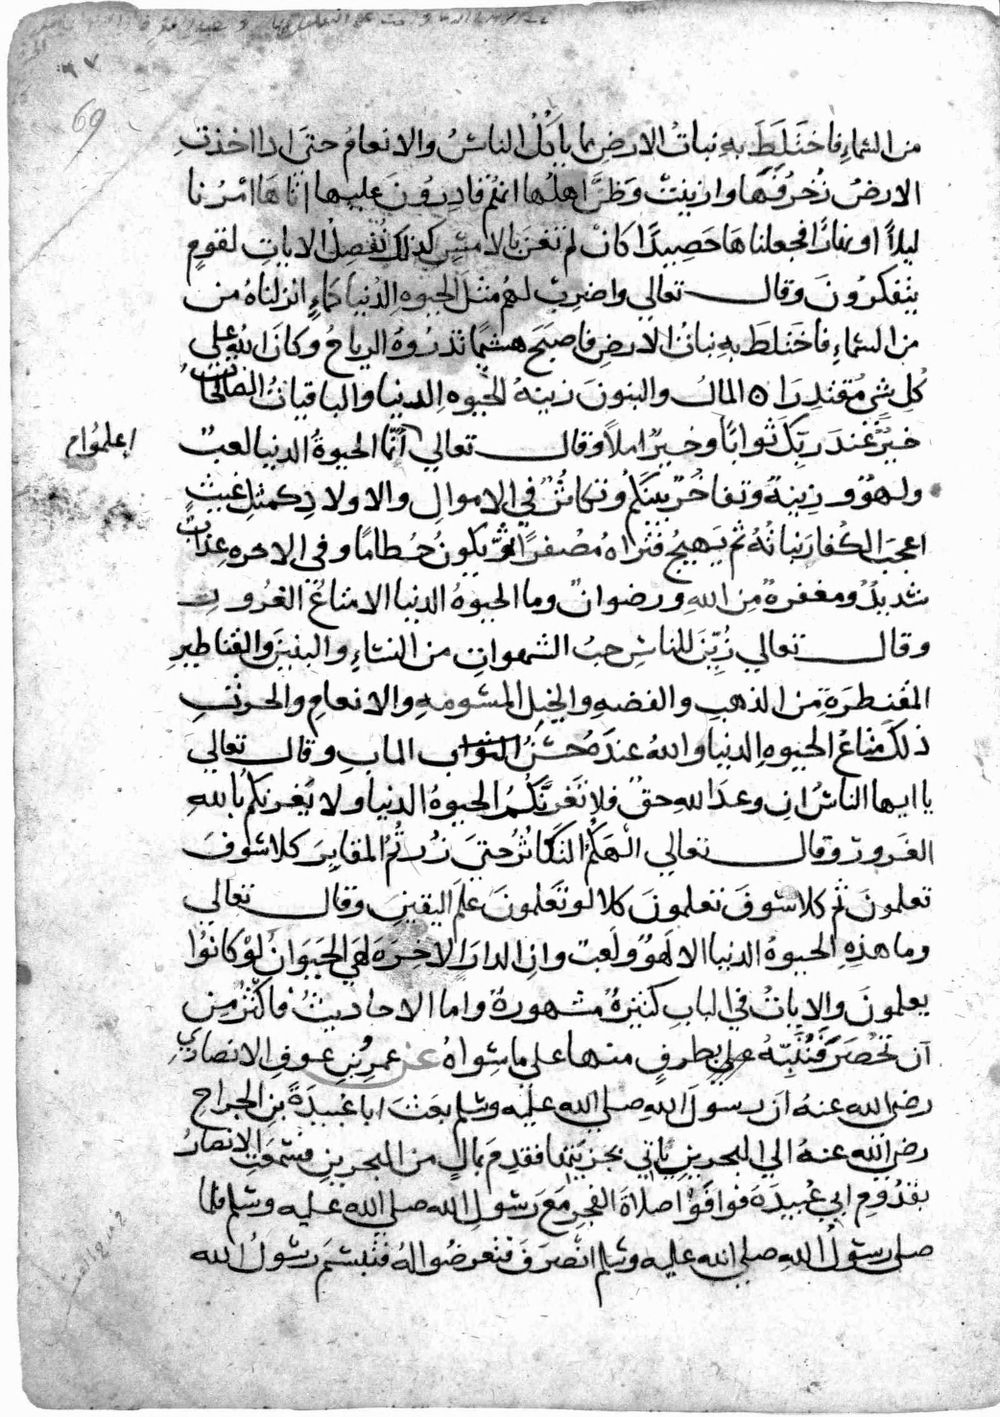 69
من السماء فاختلط به نبات الارض مما ياكل الناس والانعام حتى اذا اخذت
الارض زخرفها وازينت وظن اهلها انهم قادرون عليها اتاها امرنا
ليلا او نهارا فجعلناها حصيدا كان لم تغن بالامس كذلك نفصل الايات لقوم
يتفكرون وقال تعالي واضرب لهم مثل الحيوه الدنيا كماء انزلناه من
من السماء فاختلط به نبات الارض فاصبح هشيما تذروه الرياح وكان الله علي
كل شي مقتدرا ه المال والبنون زينة الحيوه الدنيا والباقيات الصالحات
خير عند ربك ثوابا وخير املا وقال تعالي انما الحيوة الدنيا لعب
اعلموا
ولهو وزينة وتفاخر بينكم وتكاثر في الاموال والاولاد كمثل غيث
اعجب الكفار نباته ثم يهيج فتراه مصفرا ثم يكون حطاما وفي الاخره عذاب
شديد ومغفرة من الله ورضوان وما الحيوة الدنيا الا متاع الغرور
وقال تعالي زين للناس حب الشهوات من النساء والبنين والقناطير
المقنطرة من الذهب والفضه والخيل المسومه والانعام والحرث
ذلك متاع الحيوه الدنيا والله عنده حسن الثواب الماب وقال تعالي
يا ايها الناس ان وعد الله حق فلا تغرنكم الحيوة الدنيا ولا يغرنكم بالله
الغرور وقال تعالي الهكم التكاثر حتى زرتم المقابر كلا سوف
تعلمون ثم كلا سوف تعلمون كلا لو تعلمون علم اليقين وقال تعالي
وما هذه الحيوة الدنيا الا لهو ولعب وان الدار الاخرة لهي الحيوان لو كانوا
يعلمون والايات في الباب كثيرة مشهورة واما الاحاديث فاكثر من
ان تحصر فننبه بطرف منها علي ما سواه عن عمرو بن عوف الانصاري
رضي الله عنه ان رسول الله صلي الله عليه وسلم بعث ابا عبيدة بن الجراح
رضي الله عنه الي البحرين ياتي بجزيتها فقدم بمال من البحرين فسمعت الانصار
بقدوم ابي عبيدة فوافوا صلاة الفجر مع رسول الله صلي الله عليه وسلم فلما
صلي رسول الله صلي الله عليه وسلم انصرف فتعرضوا له فتبسم رسول الله